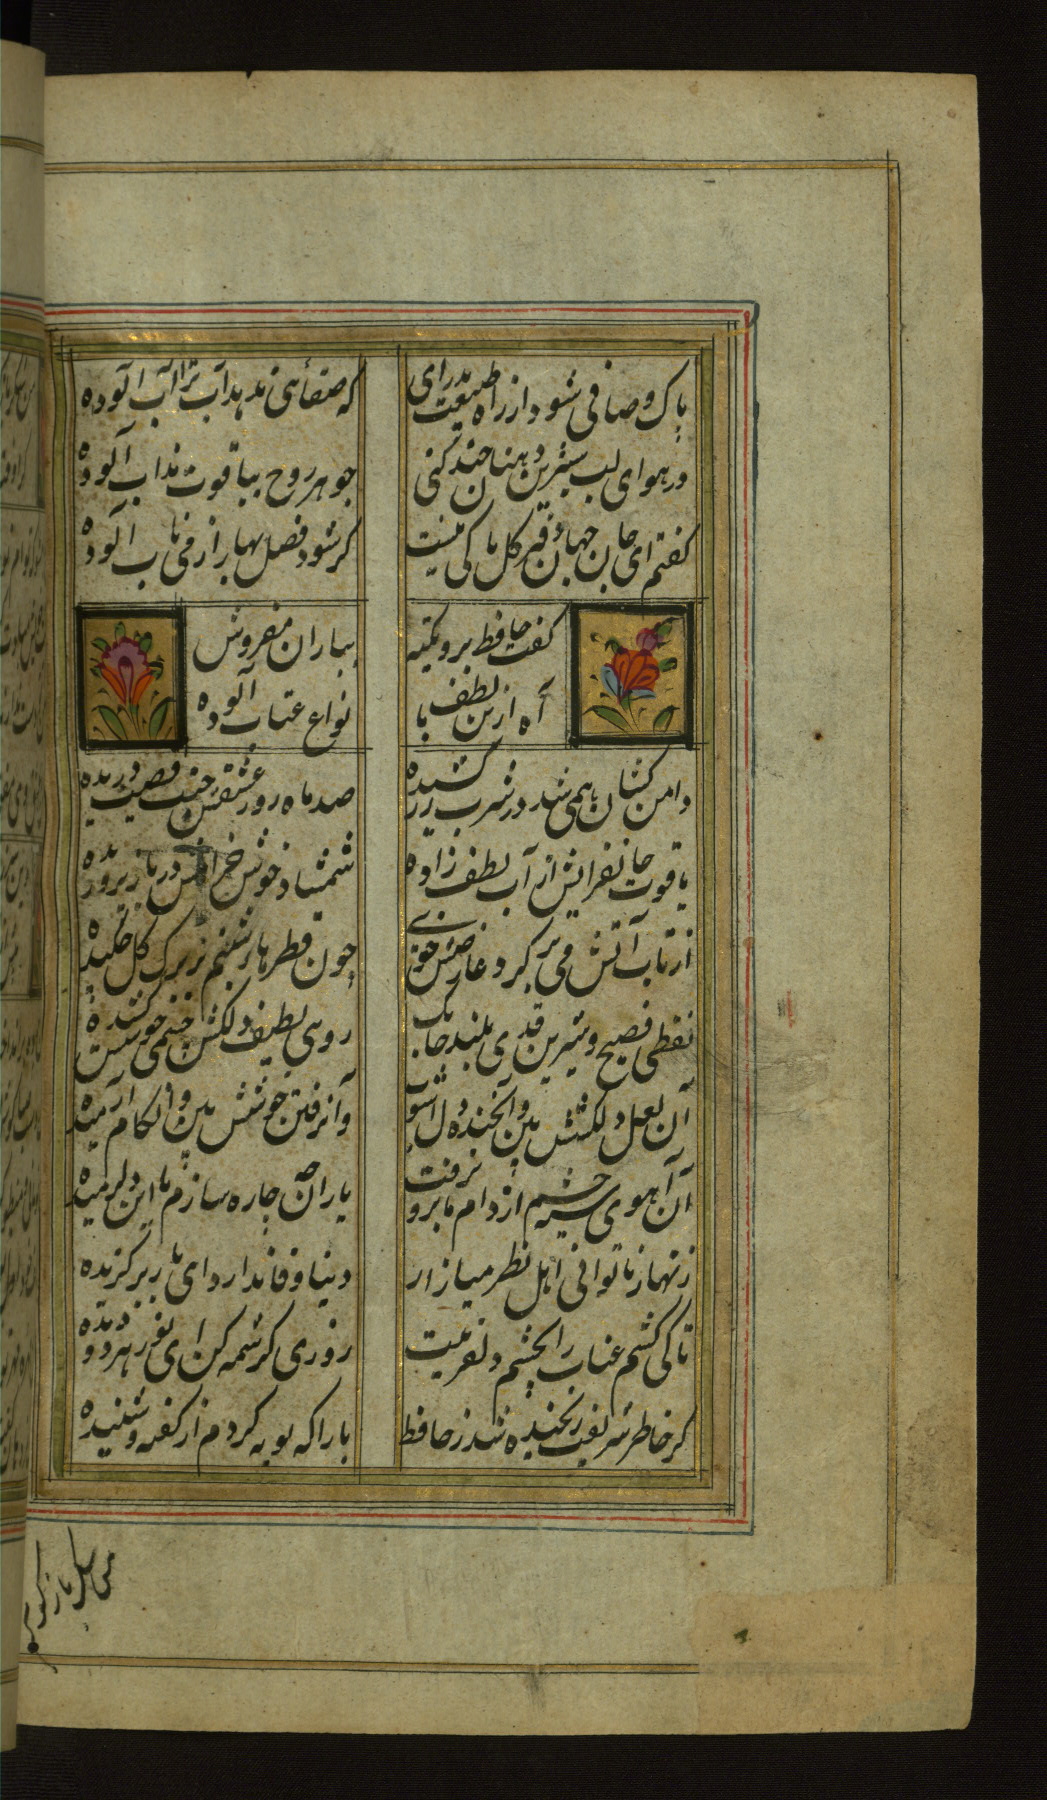 پاک و صافی شو و از راه طبیعت بدرای
که صفائی ندهد آب تراب آلوده
در هوای لب شیرین دهنان چند کنی
جوهر روح بیاقوت مذاب آلوده
کفتم ای جان جهان دفتر کل باکی نیست
کر شود فصل بهار از می ناب آلوده
کفت حافظ برو نکته
بیاران مفروش
آه ازین لطف با
نواع عتاب آلوده
دامن کشان همی شد در شرب زر کشیده
صد ماه رو ز عشقش جیب قصب دریده
یاقوت جانفزایش از آب لطف زاده
شمشاد خوش خرامش در ناز پروریده
از تاب آتش می بر کرد عارضش خوی
چون قطرهای شبنم بر برک کل چکیده
لفظی فصیح و شیرین قدی بلند چابک
روی لطیف دلکش چشمی خوش کشیده
آن لعل دلکشش بین وآن خنده دل آشوب
وآن رفتن خوشش بین وآن کام آرمیده
آن آهوی سیه چشم از دام ما برون رفت
یاران چه چاره سازم با این دل رمیده
زنهار تا توانی اهل نظر میازار
دنیا وفا ندارد ای یار برکزیده
تا کی کشم عتاب از چشم دلفریبت
روزی کرشمه کن ای نور هر دو دیده
کر خاطر شریفت رنجیده شد ز حافظ
بازآ که توبه کردم از کفته و شنیده